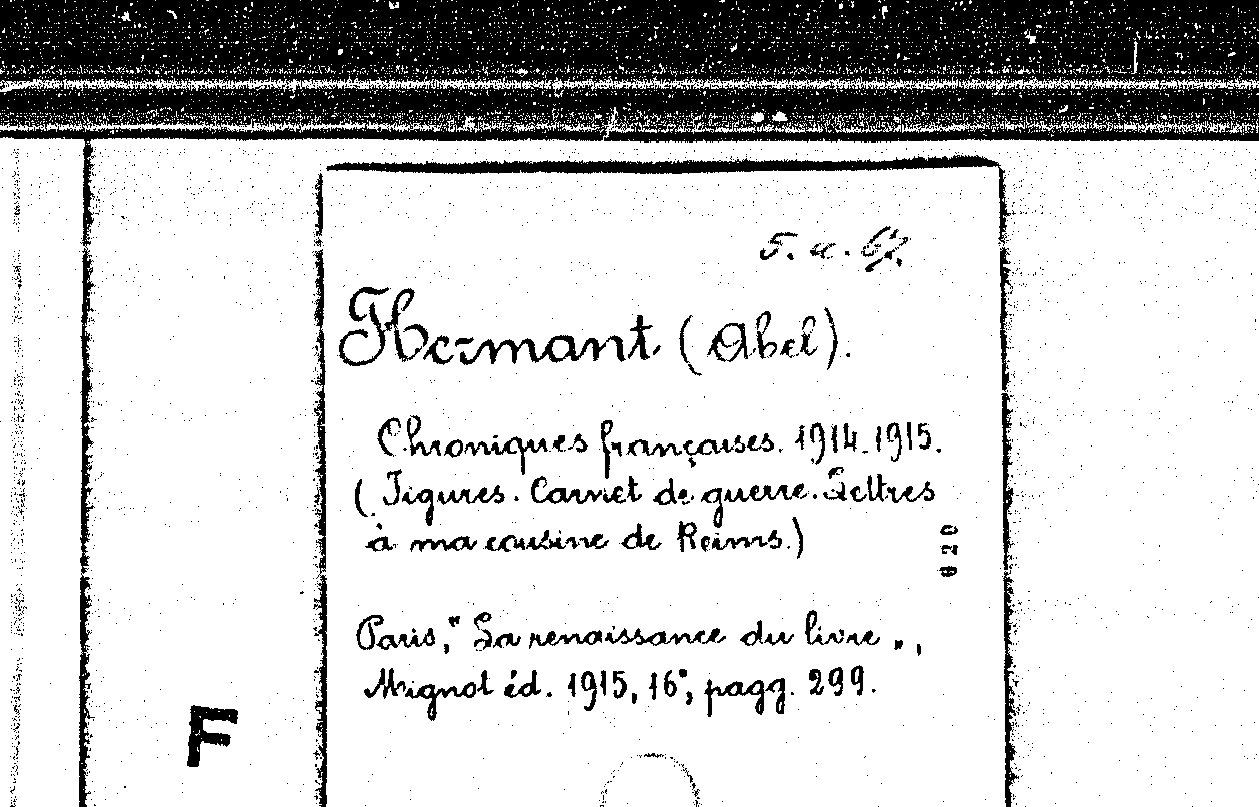 5. a. 67.
Hermant (Abel).
Chroniques françaises. 1914-1915.
(Figures. Carnet de guerre. Lettres
à ma cousine de Reims.)
020
Paris, "La renaissance du livre",
Mignot éd. 1915, 16°, pagg. 299.
F